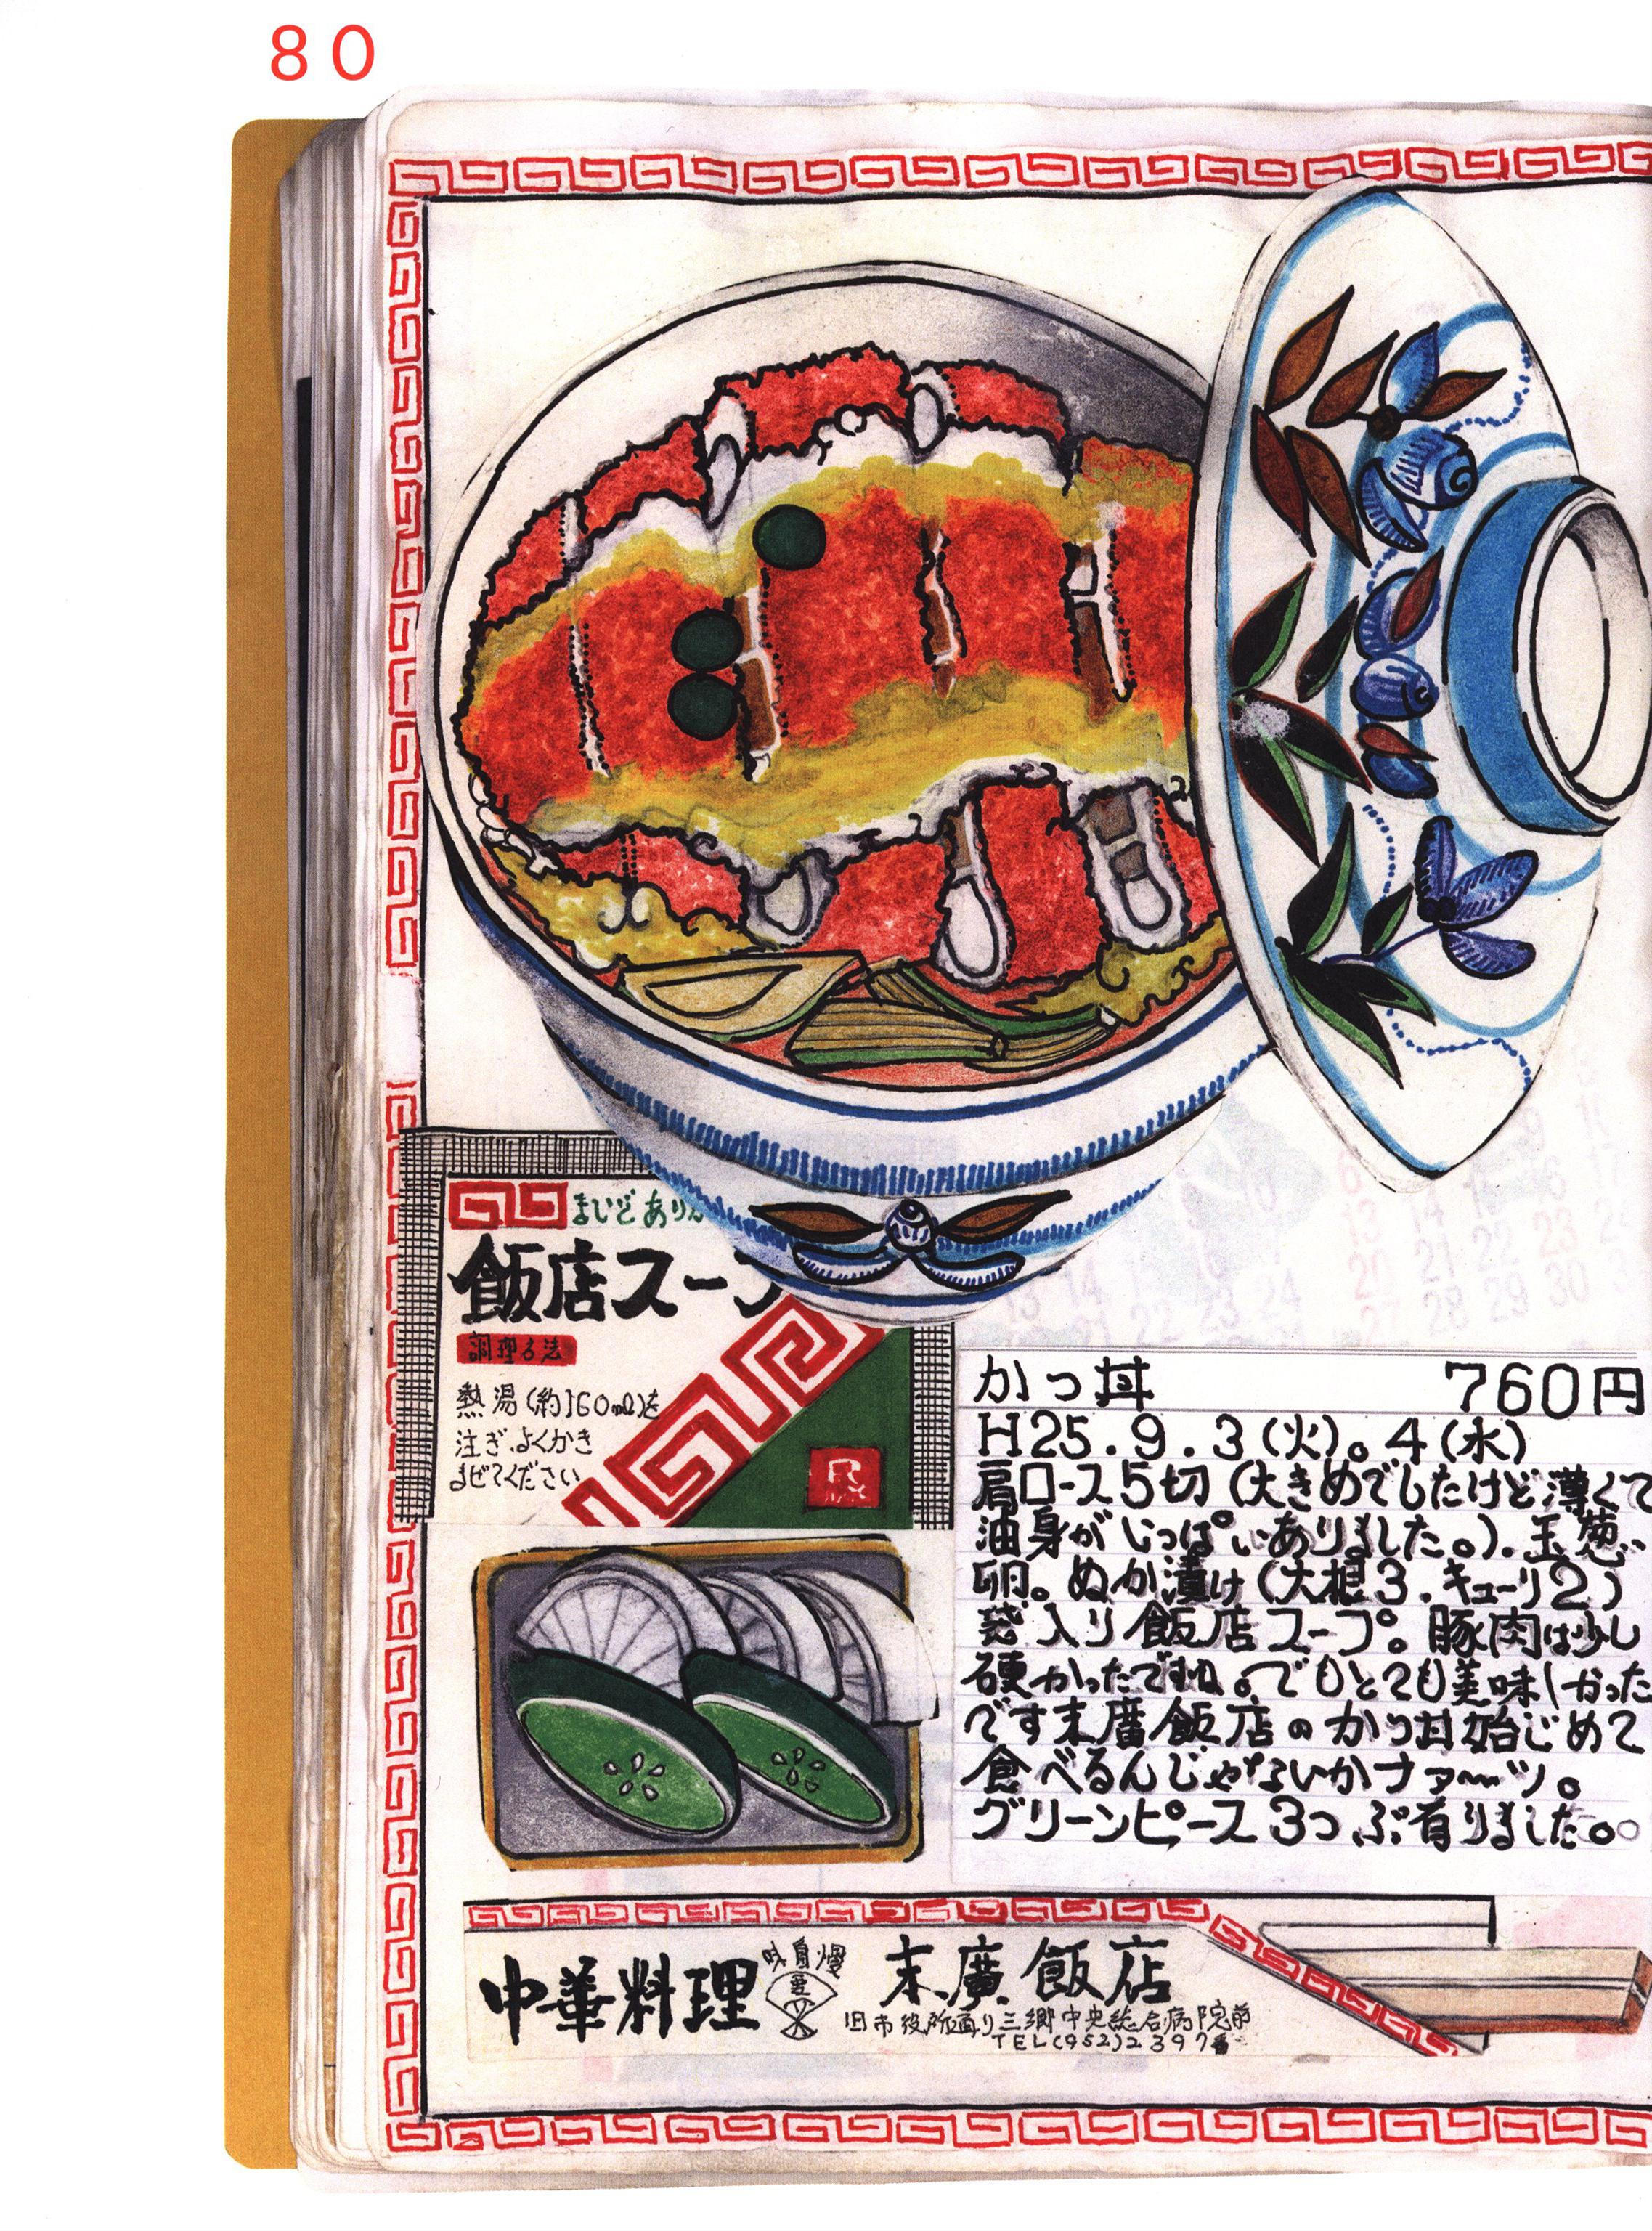 80
まいどありが
飯店スープ
調理方法
熱湯(約160mℓ)を
注ぎ、よくかき
まぜてください
かつ丼 760円
H25.9.3(火)。4(水)
肩ロース5切(大きめでしたけど薄くて
油身がいっぱいありました。).玉葱、
卵。ぬか漬け(大根3.キューリ2)
袋入り飯店スープ。豚肉は少し
硬かったですね。でもとても美味しかった
です末廣飯店のかつ丼始じめて
食べるんじゃないかナァ〜ッ。
グリーンピース3つぶ有りました。
中華料理 味自慢 末廣飯店
旧市役所通り三郷中央総合病院前
TEL(952)2397番